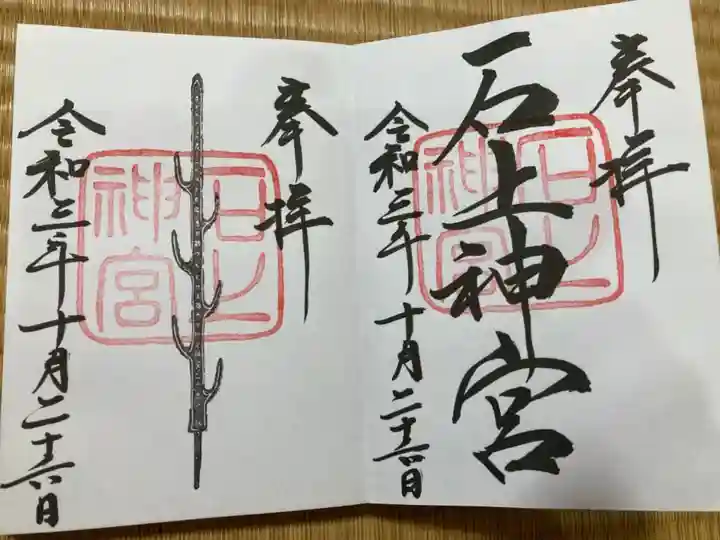 奉拝
石上神宮
石上
神宮
令和三年十月二十六日
奉拝
石上
神宮
令和三年十月二十六日